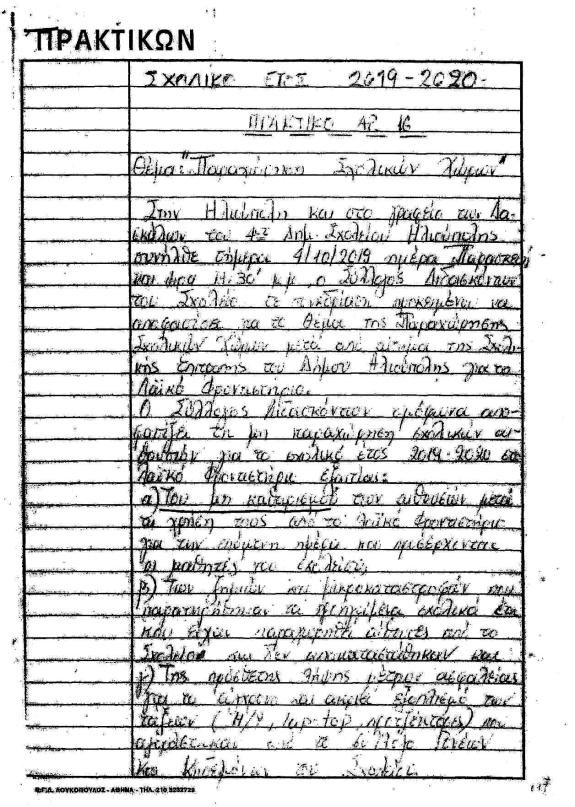 ΠΡΑΚΤΙΚΩΝ
ΣΧΟΛΙΚΟ ΕΤΟΣ 2019-2020.
ΠΡΑΚΤΙΚΟ ΑΡ. 16
Θέμα: "Παραχώρηση Σχολικών Χώρων"
Στην Ηλιούπολη και στο γραφείο των Δα-
σκάλων του 4ου Δημ. Σχολείου Ηλιούπολης
συνήλθε σήμερα 4/10/2019 ημέρα Παρασκευή
και ώρα 14:30' μ.μ. ο Σύλλογος Διδασκόντων
του Σχολείου σε συνεδρίαση προκειμένου να
αποφασίσει για το θέμα της Παραχώρησης
Σχολικών Χώρων μετά από αίτημα της Σχολι-
κής Επιτροπής του Δήμου Ηλιούπολης για το
Λαϊκό Φροντιστήριο.
Ο Σύλλογος Διδασκόντων ομόφωνα απο-
φασίζει τη μη παραχώρηση σχολικών αι-
θουσών για το σχολικό έτος 2019-2020 στο
Λαϊκό Φροντιστήριο εξαιτίας:
α) Του μη καθαρισμού των αιθουσών μετά
τη χρήση τους από το Λαϊκό Φροντιστήριο
για την επόμενη ημέρα που προσέρχονται
οι μαθητές του σχολείου,
β) Των ζημιών και μικροκαταστροφών που
παρατηρήθηκαν τα προηγούμενα σχολικά έτη
που είχαν παραχωρηθεί αίθουσες από το
Σχολείο και δεν αποκαταστάθηκαν και
γ) Της πρόσθετης λήψης μέτρων ασφαλείας
για το σύγχρονο και ακριβό εξοπλισμό των
τάξεων (Η/Υ, lap-top, προτζέκτορες) που
αγοράστηκαν από το Σύλλογο Γονέων
και Κηδεμόνων του Σχολείου.
ΦΙΛ. ΛΟΥΚΟΠΟΥΛΟΣ - ΑΘΗΝΑ - ΤΗΛ. 210 5232725